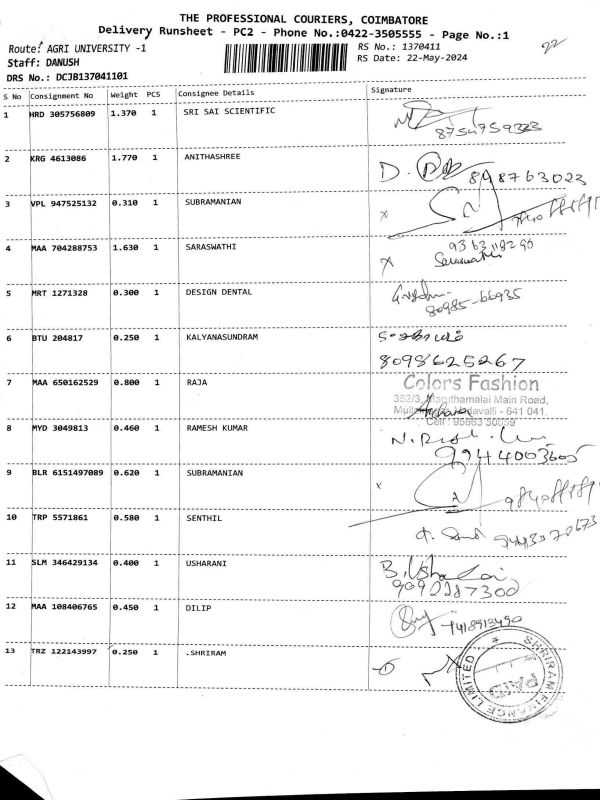 THE PROFESSIONAL COURIERS, COIMBATORE
Delivery Runsheet - PC2 - Phone No.:0422-3505555 - Page No.:1
Route: AGRI UNIVERSITY -1
RS No.: 1370411
22
Staff: DANUSH
RS Date: 22-May-2024
DRS No.: DCJB137041101
S No Consignment No Weight PCS Consignee Details Signature
1 HRD 305756809 1.370 1 SRI SAI SCIENTIFIC
8754759323
2 KRG 4613086 1.770 1 ANITHASHREE
D.
3 VPL 947525132 0.310 1 SUBRAMANIAN
x
4 MAA 704288753 1.630 1 SARASWATHI
x Saraswathi
5 MRT 1271328 0.300 1 DESIGN DENTAL
80985-66935
6 BTU 204817 0.250 1 KALYANASUNDRAM
8098625267
7 MAA 650162529 0.800 1 RAJA
Colors Fashion
352/3, Maruthamalai Main Road,
Vadavalli - 641 041.
Cell : 95663 50659
8 MYD 3049813 0.460 1 RAMESH KUMAR
9944003605
9 BLR 6151497089 0.620 1 SUBRAMANIAN
x
10 TRP 5571861 0.580 1 SENTHIL
9443070673
11 SLM 346429134 0.400 1 USHARANI
B. Usha Rani
9092287300
12 MAA 108406765 0.450 1 DILIP
7418913490
13 TRZ 122143997 0.250 1 .SHRIRAM
SHRIRAM FINANCE LIMITED
PAID